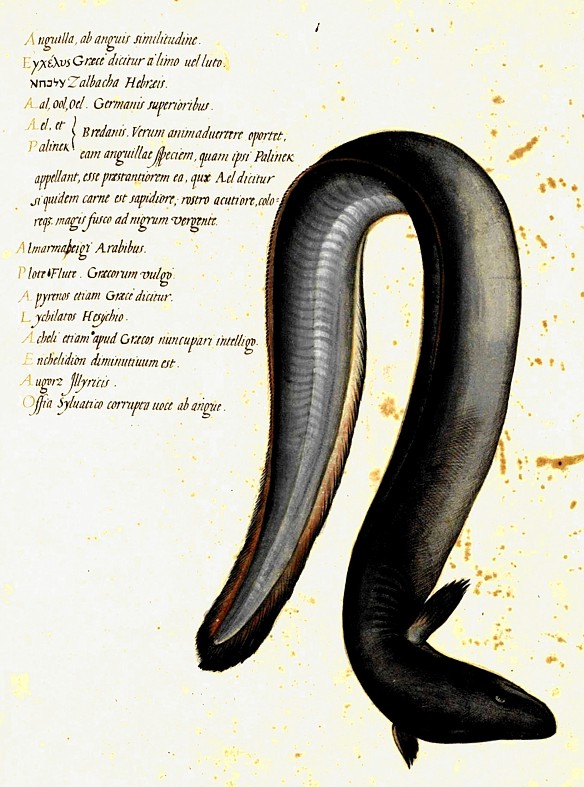 1
Anguilla, ab anguis similitudine.
Εγχέλυς Græcè dicitur a limo uel luto.
צלבחא Zalbacha Hebræis.
Aal, ool, oel. Germanis superioribus.
Ael, et Palinek } Bredanis. Verum animaduertere oportet,
eam anguillae speciem, quam ipsi Palinek
appellant, esse præstantiorem ea, quæ Ael dicitur
siquidem carne est sapidiore, rostro acutiore, colo=
reqз magis fusco ad nigrum vergente.
Almarmaheigi Arabibus.
Plote Flute. Græcorum vulgo
Apyrenos etiam Græcè dicitur.
Lychilatos Hesychio.
Acheli etiam apud Græcos nuncupari intelligo.
Enchelidion diminutiuum est.
Augorz Illyricis.
Offia Syluatico corrupta uoce ab angue.